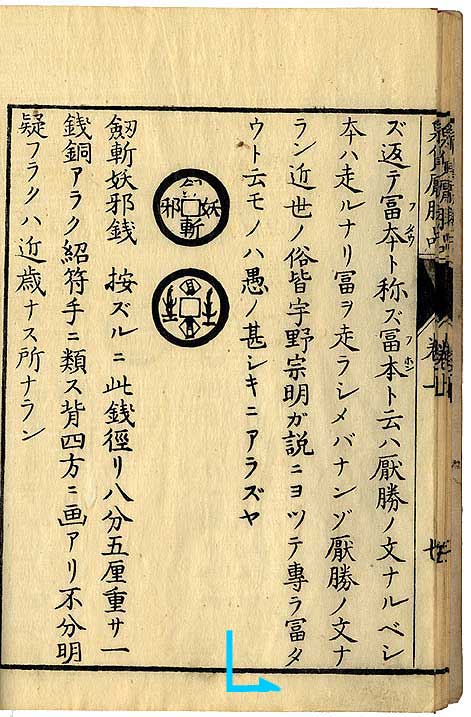 ズ返テ富夲ト称ズ冨本ト云ハ厭勝ノ文ナルベシ
フタウ
フホン
夲ハ走ルナリ冨ヲ走ラシメバナンゾ厭勝ノ文ナ
ラン近世ノ俗皆宇野宗明ガ説ニヨツテ專ラ冨タ
ウト云モノハ愚ノ甚シキニアラズヤ
妖
斬
邪
劔斬妖邪銭 按ズルニ此銭徑リ八分五厘重サ一
銭銅アラク紹符手ニ類ス背四方ニ画アリ不分明
疑フラクハ近歳ナス所ナラン